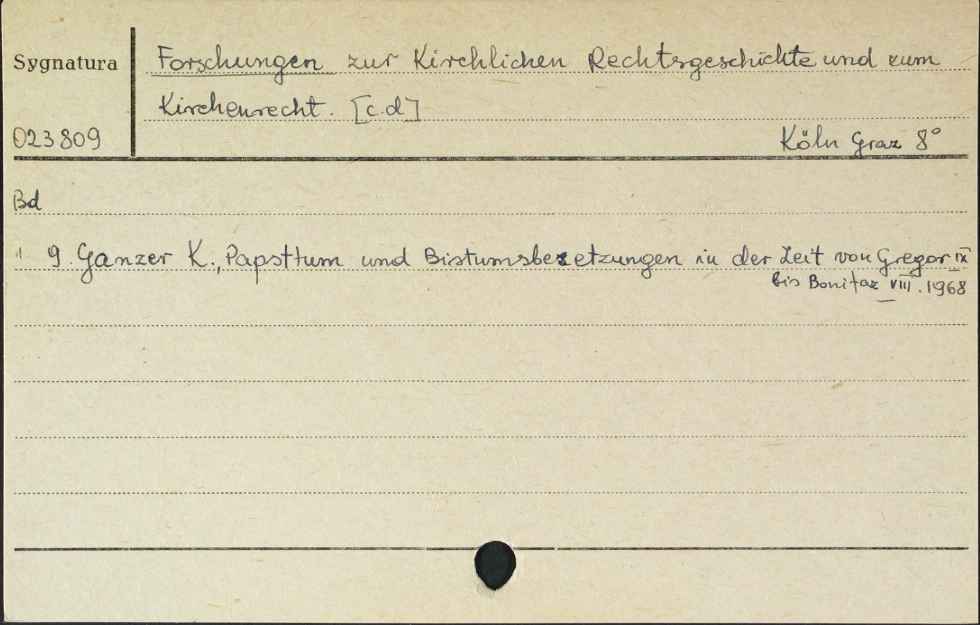 Sygnatura
Forschungen zur Kirchlichen Rechtsgeschichte und zum
Kirchenrecht. [c.d]
023809
Köln Graz 8°
Bd
" 9. Ganzer K., Papsttum und Bistumsbesetzungen in der Zeit von Gregor IX
bis Bonifaz VIII. 1968